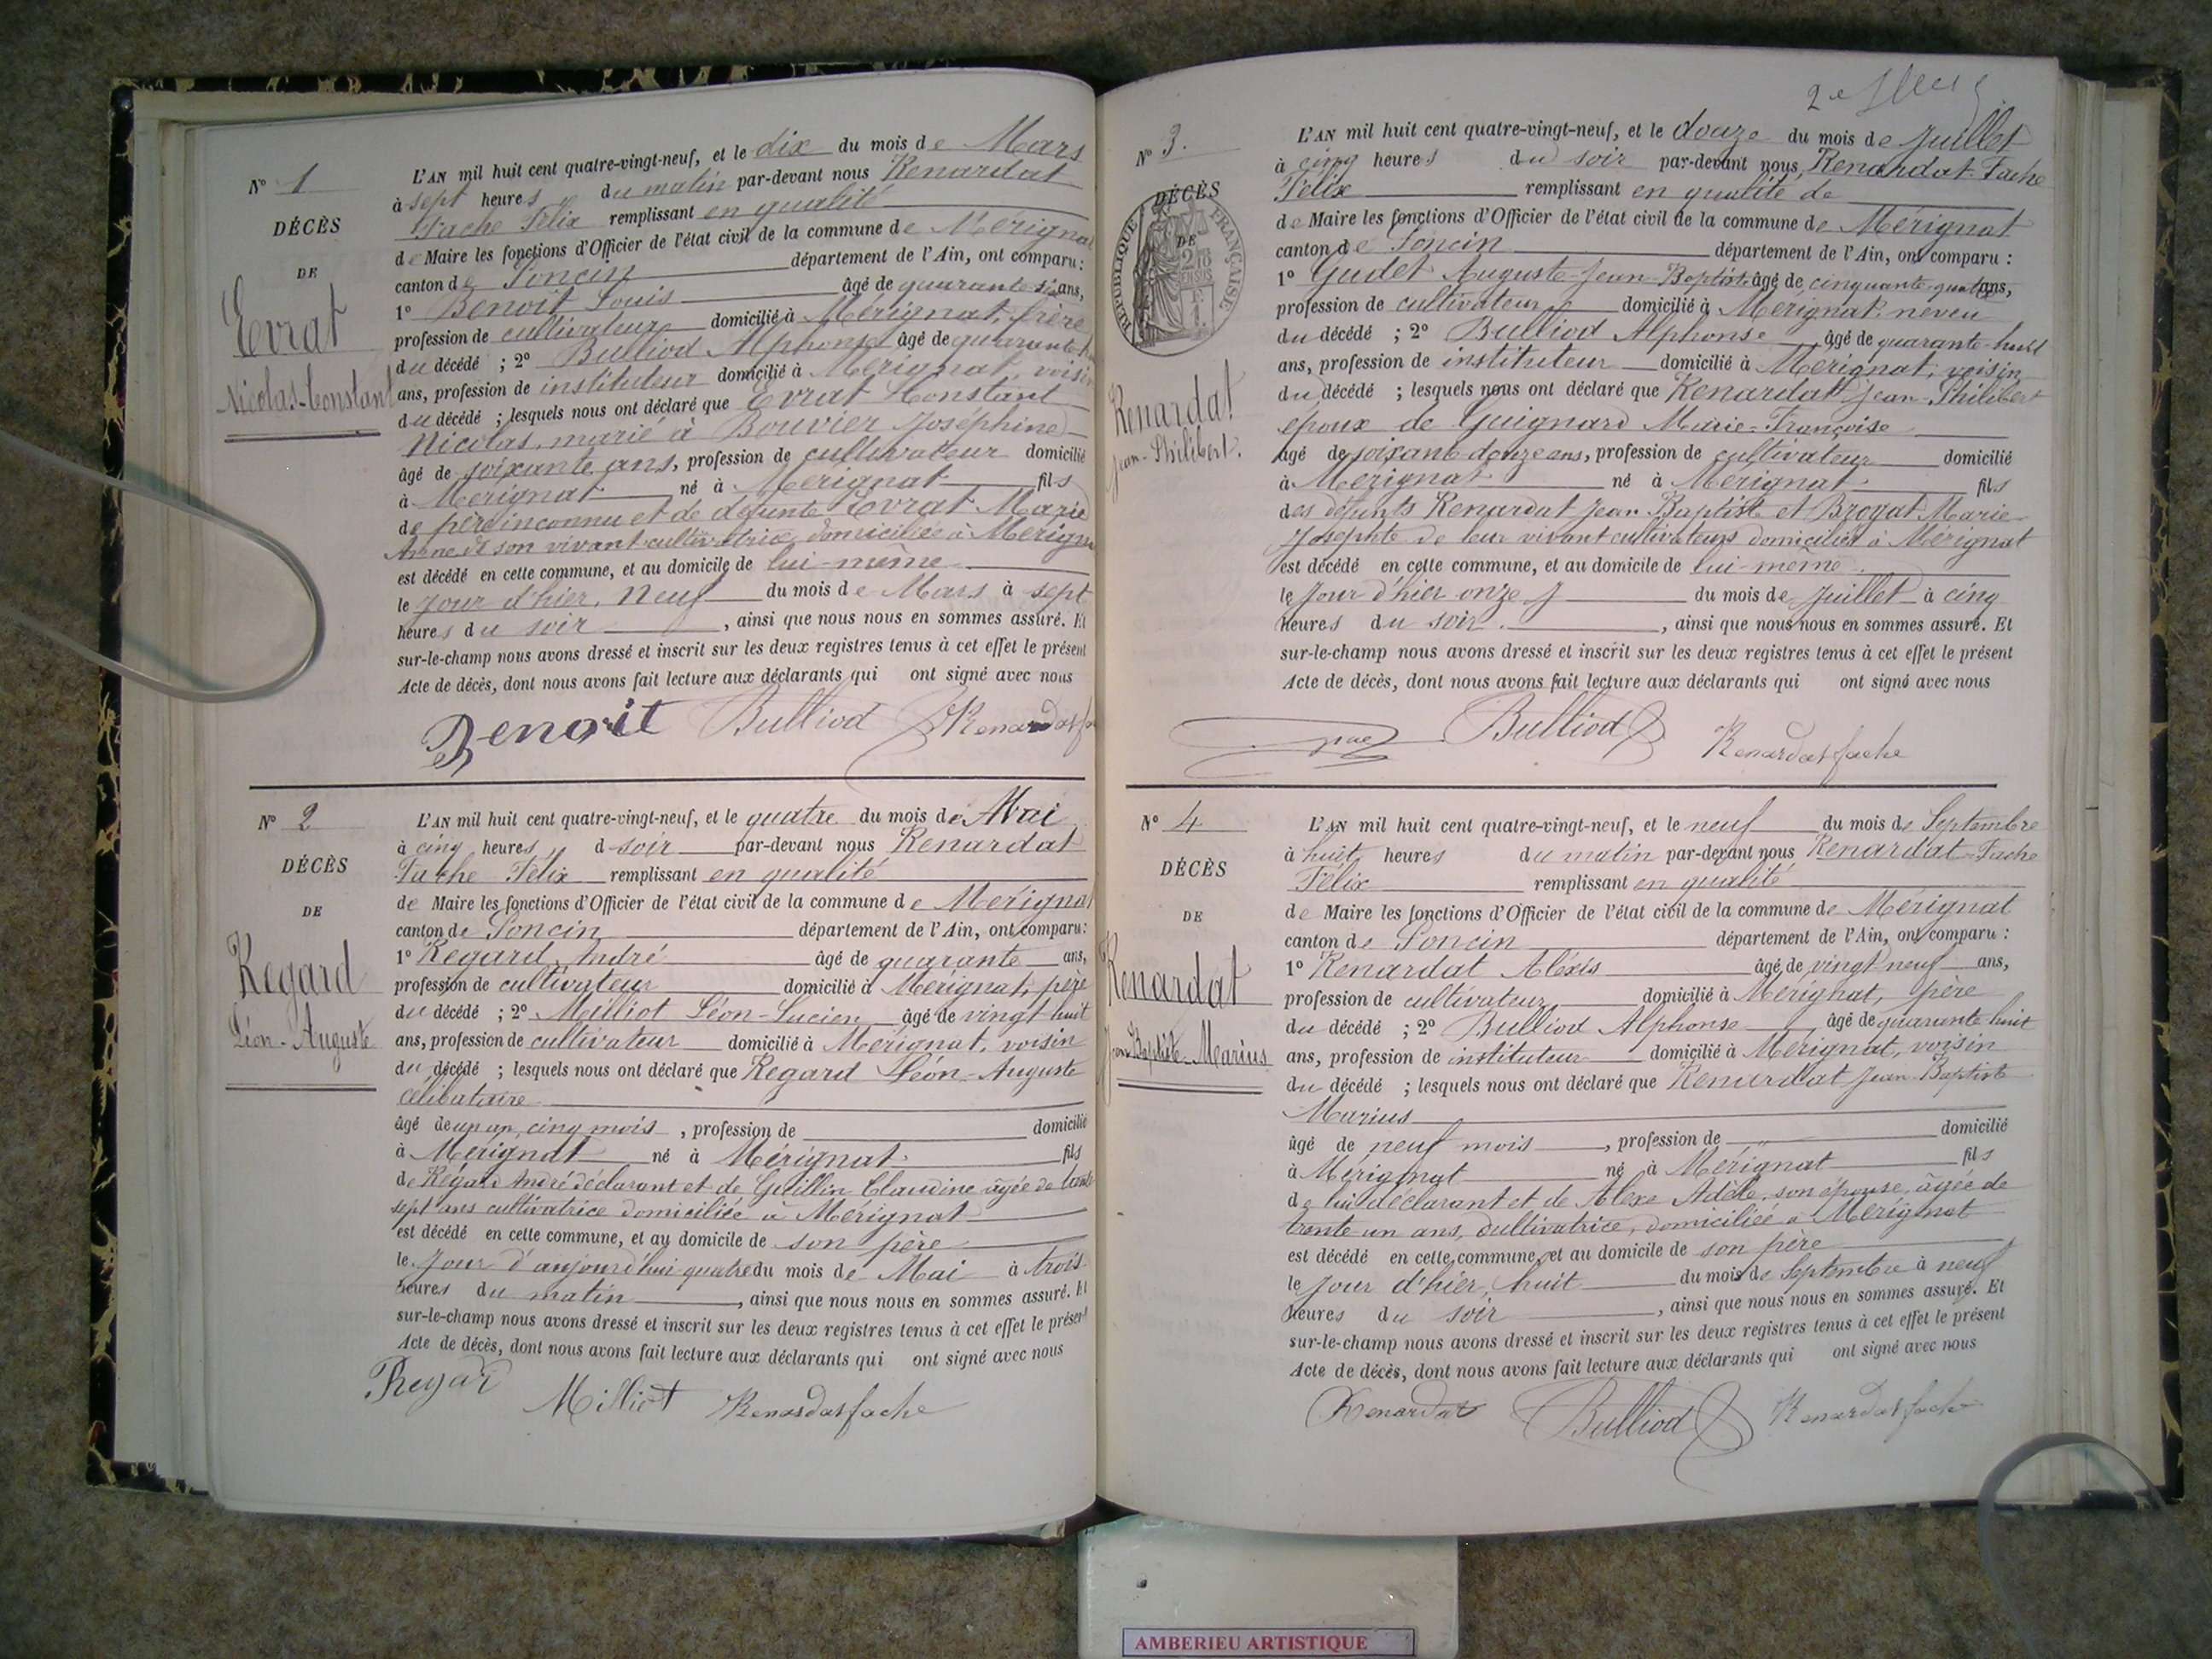 Nº 1
DÉCÈS
DE
Evrat
Nicolas-Constant
L'AN mil huit cent quatre-vingt-neuf, et le dix du mois de Mars
à sept heures du matin par-devant nous Renardat
Fache Félix remplissant en qualité
de Maire les fonctions d'Officier de l'état civil de la commune de Mérignat
canton de Poncin département de l'Ain, ont comparu :
1º Benoit Louis âgé de quarante six ans,
profession de cultivateur domicilié à Mérignat, frère
du décédé ; 2º Bulliod Alphonse âgé de quarante
ans, profession de instituteur domicilié à Mérignat, voisin
du décédé ; lesquels nous ont déclaré que Evrat Constant
Nicolas, marié à Bouvier Joséphine
âgé de soixante ans, profession de cultivateur domicilié
à Mérignat né à Mérignat fils
de père inconnu et de défunte Evrat Marie
Anne de son vivant cultivatrice domiciliée à Mérignat
est décédé en cette commune, et au domicile de lui-même
le jour d'hier, neuf du mois de Mars à sept
heures du soir , ainsi que nous nous en sommes assuré. Et
sur-le-champ nous avons dressé et inscrit sur les deux registres tenus à cet effet le présent
Acte de décès, dont nous avons fait lecture aux déclarants qui ont signé avec nous
Benoit Bulliod Renardat f
Nº 2
DÉCÈS
DE
Regard
Léon-Auguste
L'AN mil huit cent quatre-vingt-neuf, et le quatre du mois de Mai
à cinq heures d soir par-devant nous Renardat
Fache Félix remplissant en qualité
de Maire les fonctions d'Officier de l'état civil de la commune de Mérignat
canton de Poncin département de l'Ain, ont comparu :
1º Regard André âgé de quarante ans,
profession de cultivateur domicilié à Mérignat, père
du décédé ; 2º Milliot Léon-Lucien âgé de vingt huit
ans, profession de cultivateur domicilié à Mérignat, voisin
du décédé ; lesquels nous ont déclaré que Regard Léon-Auguste
célibataire
âgé de un an, cinq mois , profession de domicilié
à Mérignat né à Mérignat fils
de Regard André déclarant et de Guillin Claudine âgée de trente
sept ans cultivatrice domiciliée à Mérignat
est décédé en cette commune, et au domicile de son père
le jour d'aujourd'hui quatre du mois de Mai à trois
heures du matin , ainsi que nous nous en sommes assuré. Et
sur-le-champ nous avons dressé et inscrit sur les deux registres tenus à cet effet le présent
Acte de décès, dont nous avons fait lecture aux déclarants qui ont signé avec nous
Regard Milliot Renardatfache
2e
Nº 3.
DÉCÈS
DE
RÉPUBLIQUE FRANÇAISE
Renardat
Jean-Philibert.
L'AN mil huit cent quatre-vingt-neuf, et le douze du mois de Juillet
à cinq heures du soir par-devant nous, Renardat-Fache
Félix remplissant en qualité de
de Maire les fonctions d'Officier de l'état civil de la commune de Mérignat
canton de Poncin département de l'Ain, ont comparu :
1º Gudet Auguste-Jean-Baptiste âgé de cinquante-quatre ans,
profession de cultivateur domicilié à Mérignat neveu
du décédé ; 2º Bulliod Alphonse âgé de quarante-huit
ans, profession de instituteur domicilié à Mérignat, voisin
du décédé ; lesquels nous ont déclaré que Renardat Jean-Philibert
époux de Guignard Marie-Françoise
âgé de soixante douze ans, profession de cultivateur domicilié
à Mérignat né à Mérignat fils
des défunts Renardat Jean-Baptiste et Marie
Josephte de leur vivant cultivateurs domiciliés à Mérignat
est décédé en cette commune, et au domicile de lui-même
le jour d'hier onze du mois de Juillet à cinq
heures du soir. , ainsi que nous nous en sommes assuré. Et
sur-le-champ nous avons dressé et inscrit sur les deux registres tenus à cet effet le présent
Acte de décès, dont nous avons fait lecture aux déclarants qui ont signé avec nous
Bulliod Renardatfache
Nº 4
DÉCÈS
DE
Renardat
Jean Baptiste-Marius
L'AN mil huit cent quatre-vingt-neuf, et le neuf du mois de Septembre
à huit heures du matin par-devant nous Renardat-Fache
Félix remplissant en qualité
de Maire les fonctions d'Officier de l'état civil de la commune de Mérignat
canton de Poncin département de l'Ain, ont comparu :
1º Renardat Aléxis âgé de vingt neuf ans,
profession de cultivateur domicilié à Mérignat, père
du décédé ; 2º Bulliod Alphonse âgé de quarante-huit
ans, profession de instituteur domicilié à Mérignat, voisin
du décédé ; lesquels nous ont déclaré que Renardat Jean-Baptiste
Marius
âgé de neuf mois , profession de domicilié
à Mérignat né à Mérignat fils
de lui déclarant et de Alexe Adèle, son épouse, âgée de
trente-un ans, cultivatrice, domiciliée à Mérignat
est décédé en cette commune, et au domicile de son père
le jour d'hier, huit du mois de Septembre à neuf
heures du soir , ainsi que nous nous en sommes assuré. Et
sur-le-champ nous avons dressé et inscrit sur les deux registres tenus à cet effet le présent
Acte de décès, dont nous avons fait lecture aux déclarants qui ont signé avec nous
Renardat Bulliod Renardatfache
AMBERIEU ARTISTIQUE